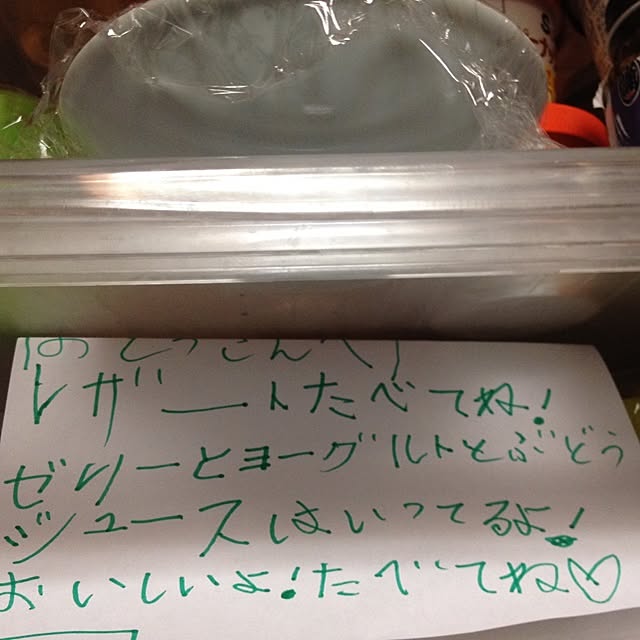 おとうさんへ!
レザートたべてね!
ゼリーとヨーグルトとぶどう
ジュースはいってるよ!
おいしいよ!たべてね♡